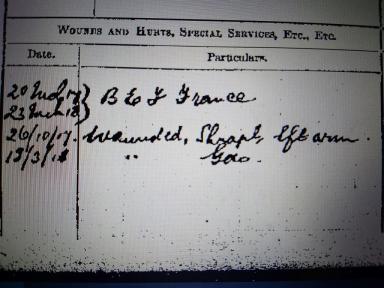 WOUNDS AND HURTS, SPECIAL SERVICES, ETC., ETC.
Date. Particulars.
B E F France
23
26/10/17. Wounded, Shrapl, left arm.
13/3/18 " Gas.